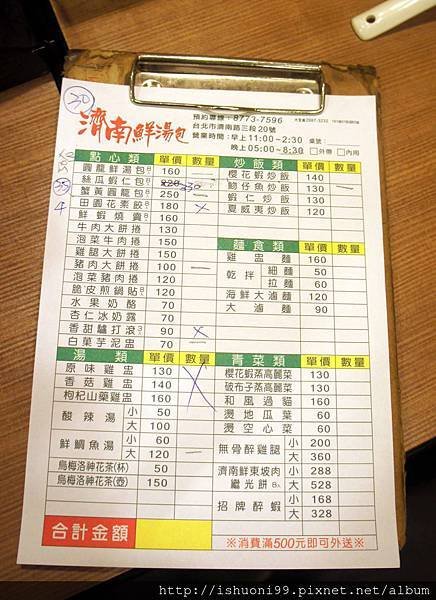 30
濟南鮮湯包
預約專線:8773-7596
台北市濟南路三段20號
營業時間:早上11:00~2:30
晚上05:00~8:30 □外帶 □內用
桌號:
點心類 單價 數量
圓籠鮮湯包 160 一
絲瓜蝦仁包 220 330
蟹黃圓籠包 250 一
田園花素餃 180 X
鮮蝦燒賣 160
牛肉大餅捲 130
泡菜牛肉捲 150
雞腿大餅捲 150
豬肉大餅捲 100 一
泡菜豬肉捲 120
脆皮煎鍋貼 120
水果奶酪 70
杏仁冰奶露 70
香甜驢打滾 90 X
白菓芋泥盅 70 一
湯類 單價 數量
原味雞盅 130 X
香菇雞盅 140
枸杞山藥雞盅 160
酸辣湯 小 50
大 100
鮮鯛魚湯 小 60
大 120 一
烏梅洛神花茶(杯) 50
烏梅洛神花茶(壺) 150
合計金額
炒飯類 單價 數量
櫻花蝦炒飯 140
吻仔魚炒飯 130 一
蝦仁炒飯 130
夏威夷炒飯 120
麵食類 單價 數量
雞盅麵 160
乾拌 細麵 50
拉麵 60
海鮮大滷麵 120
大滷麵 90
青菜類 單價 數量
櫻花蝦蒸高麗菜 130
破布子蒸高麗菜 130
和風過貓 160
燙地瓜葉 60
燙空心菜 60
無骨醉雞腿 小 200
大 360
濟南鮮東坡肉 小 288
繼光餅 大 528
招牌醉蝦 小 168
大 328
※消費滿500元即可外送※
http://ishuoni99.pixnet.net/album